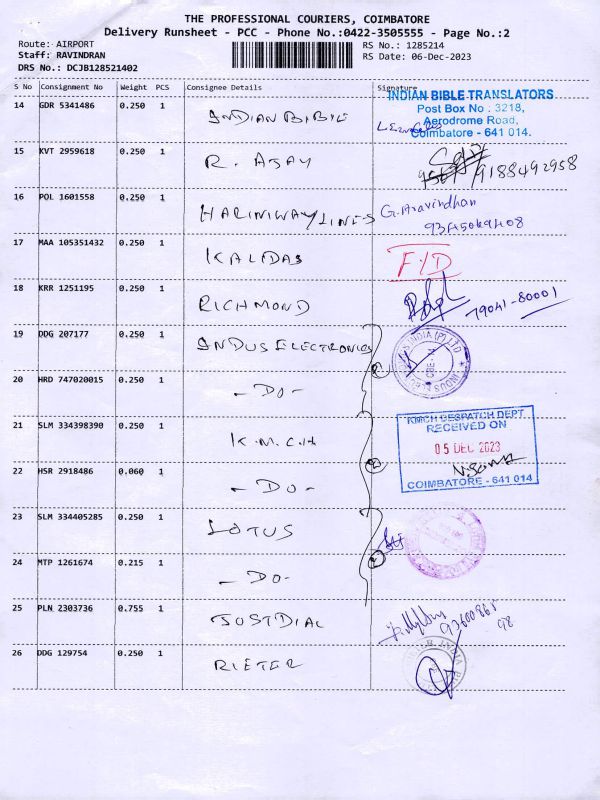 THE PROFESSIONAL COURIERS, COIMBATORE
Delivery Runsheet - PCC - Phone No.:0422-3505555 - Page No.:2
Route: AIRPORT
Staff: RAVINDRAN
DRS No.: DCJB128521402
RS No.: 1285214
RS Date: 06-Dec-2023
S No Consignment No Weight PCS Consignee Details Signature
14 GDR 5341486 0.250 1 INDIAN BIBLE
INDIAN BIBLE TRANSLATORS
Post Box No : 3218,
Aerodrome Road,
Coimbatore - 641 014.
15 KVT 2959618 0.250 1 R. AJAY
9188492958
16 POL 1601558 0.250 1 HARINIWAYLINES G. Aravindhan
17 MAA 105351432 0.250 1 KALIDAS F/D
18 KRR 1251195 0.250 1 RICHMOND 79041-80001
19 DDG 207177 0.250 1 INDUS ELECTRONICS
20 HRD 747020015 0.250 1 -DO-
21 SLM 334398390 0.250 1 K.M.C.H
KMCH DESPATCH DEPT
RECEIVED ON
05 DEC 2023
COIMBATORE - 641 014
22 HSR 2918486 0.060 1 -DO-
23 SLM 334405285 0.250 1 LOTUS
24 MTP 1261674 0.215 1 -DO-
25 PLN 2303736 0.755 1 JUSTDIAL
26 DDG 129754 0.250 1 RIETER